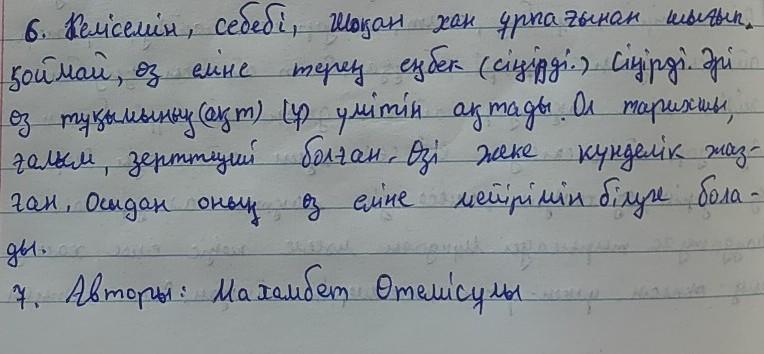 6. Келісемін, себебі, Шоқан хан ұрпағынан шығып
қоймай, өз еліне терең еңбек (сіңірді.) сіңірді. Әрі
өз тұқымының (ақт) (ү) үмітін ақтады. Ол тарихшы,
ғалым, зерттеуші болған. Өзі жеке күнделік жаз-
ған. Осыдан оның өз еліне мейірімін білуге бола-
ды.
7. Авторы: Махамбет Өтемісұлы